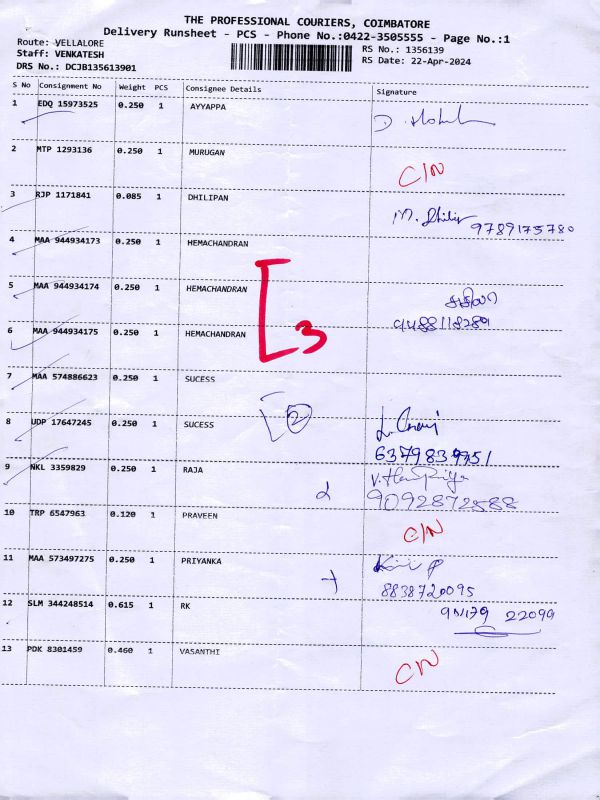 THE PROFESSIONAL COURIERS, COIMBATORE
Delivery Runsheet - PCS - Phone No.:0422-3505555 - Page No.:1
Route: VELLALORE
Staff: VENKATESH
DRS No.: DCJB135613901
RS No.: 1356139
RS Date: 22-Apr-2024
S No Consignment No Weight PCS Consignee Details Signature
1 EDQ 15973525 0.250 1 AYYAPPA
2 MTP 1293136 0.250 1 MURUGAN C/N
3 RJP 1171841 0.085 1 DHILIPAN M. Dhilip 9789175780
4 MAA 944934173 0.250 1 HEMACHANDRAN
5 MAA 944934174 0.250 1 HEMACHANDRAN
3
9488118289
6 MAA 944934175 0.250 1 HEMACHANDRAN
7 MAA 574886623 0.250 1 SUCESS
8 UDP 17647245 0.250 1 SUCESS 2
6379839751
9 NKL 3359829 0.250 1 RAJA
9092872588
10 TRP 6547963 0.120 1 PRAVEEN C/N
11 MAA 573497275 0.250 1 PRIYANKA
8838720095
12 SLM 344248514 0.615 1 RK 22099
13 PDK 8301459 0.460 1 VASANTHI C/N